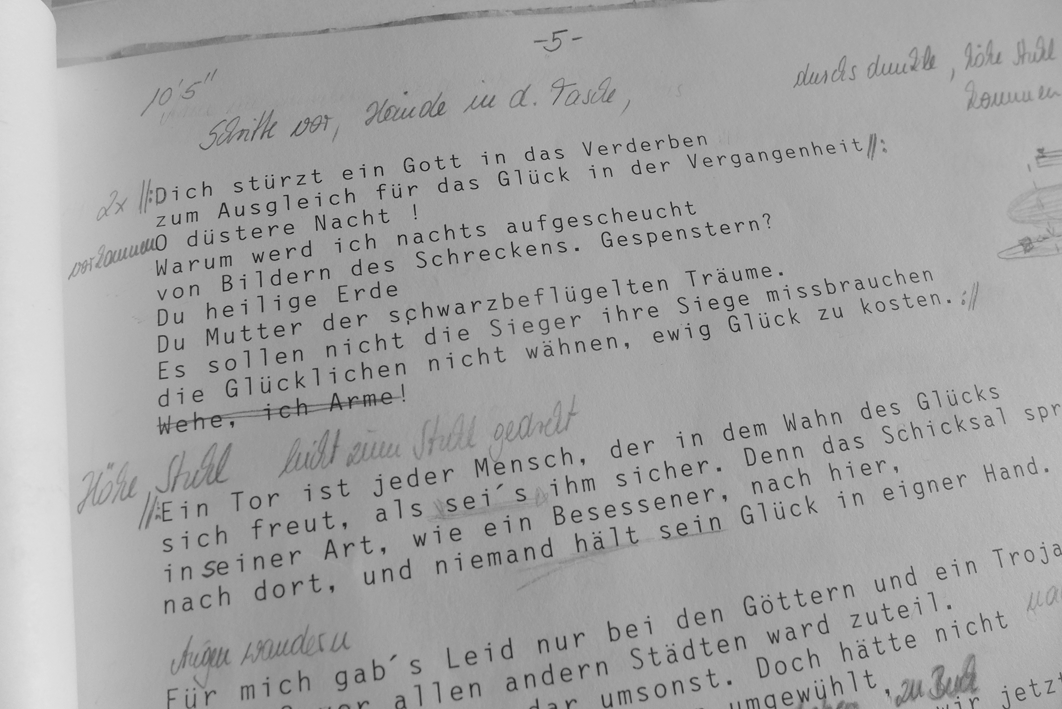 -5-
10'5"
durchs dunkle, Höhe Stuhl
kommen
Schritte vor, Hände in d. Tasche,
2x //:Dich stürzt ein Gott in das Verderben
zum Ausgleich für das Glück in der Vergangenheit//:
vorkommen O düstere Nacht !
Warum werd ich nachts aufgescheucht
von Bildern des Schreckens. Gespenstern?
Du heilige Erde
Du Mutter der schwarzbeflügelten Träume.
Es sollen nicht die Sieger ihre Siege missbrauchen
die Glücklichen nicht wähnen, ewig Glück zu kosten.://
Wehe, ich Arme!
Höhe Stuhl leicht zum Stuhl gedreht
//:Ein Tor ist jeder Mensch, der in dem Wahn des Glücks
sich freut, als sei´s ihm sicher. Denn das Schicksal spr
in seiner Art, wie ein Besessener, nach hier,
nach dort, und niemand hält sein Glück in eigner Hand.
Augen wandern
Für mich gab´s Leid nur bei den Göttern und ein Troja
vor allen andern Städten ward zuteil.
umsonst. Doch hätte nicht
umgewühlt, zu Buch
wir jetzt